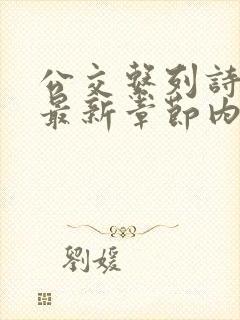 公交系列詩
最新章節內
劉媛